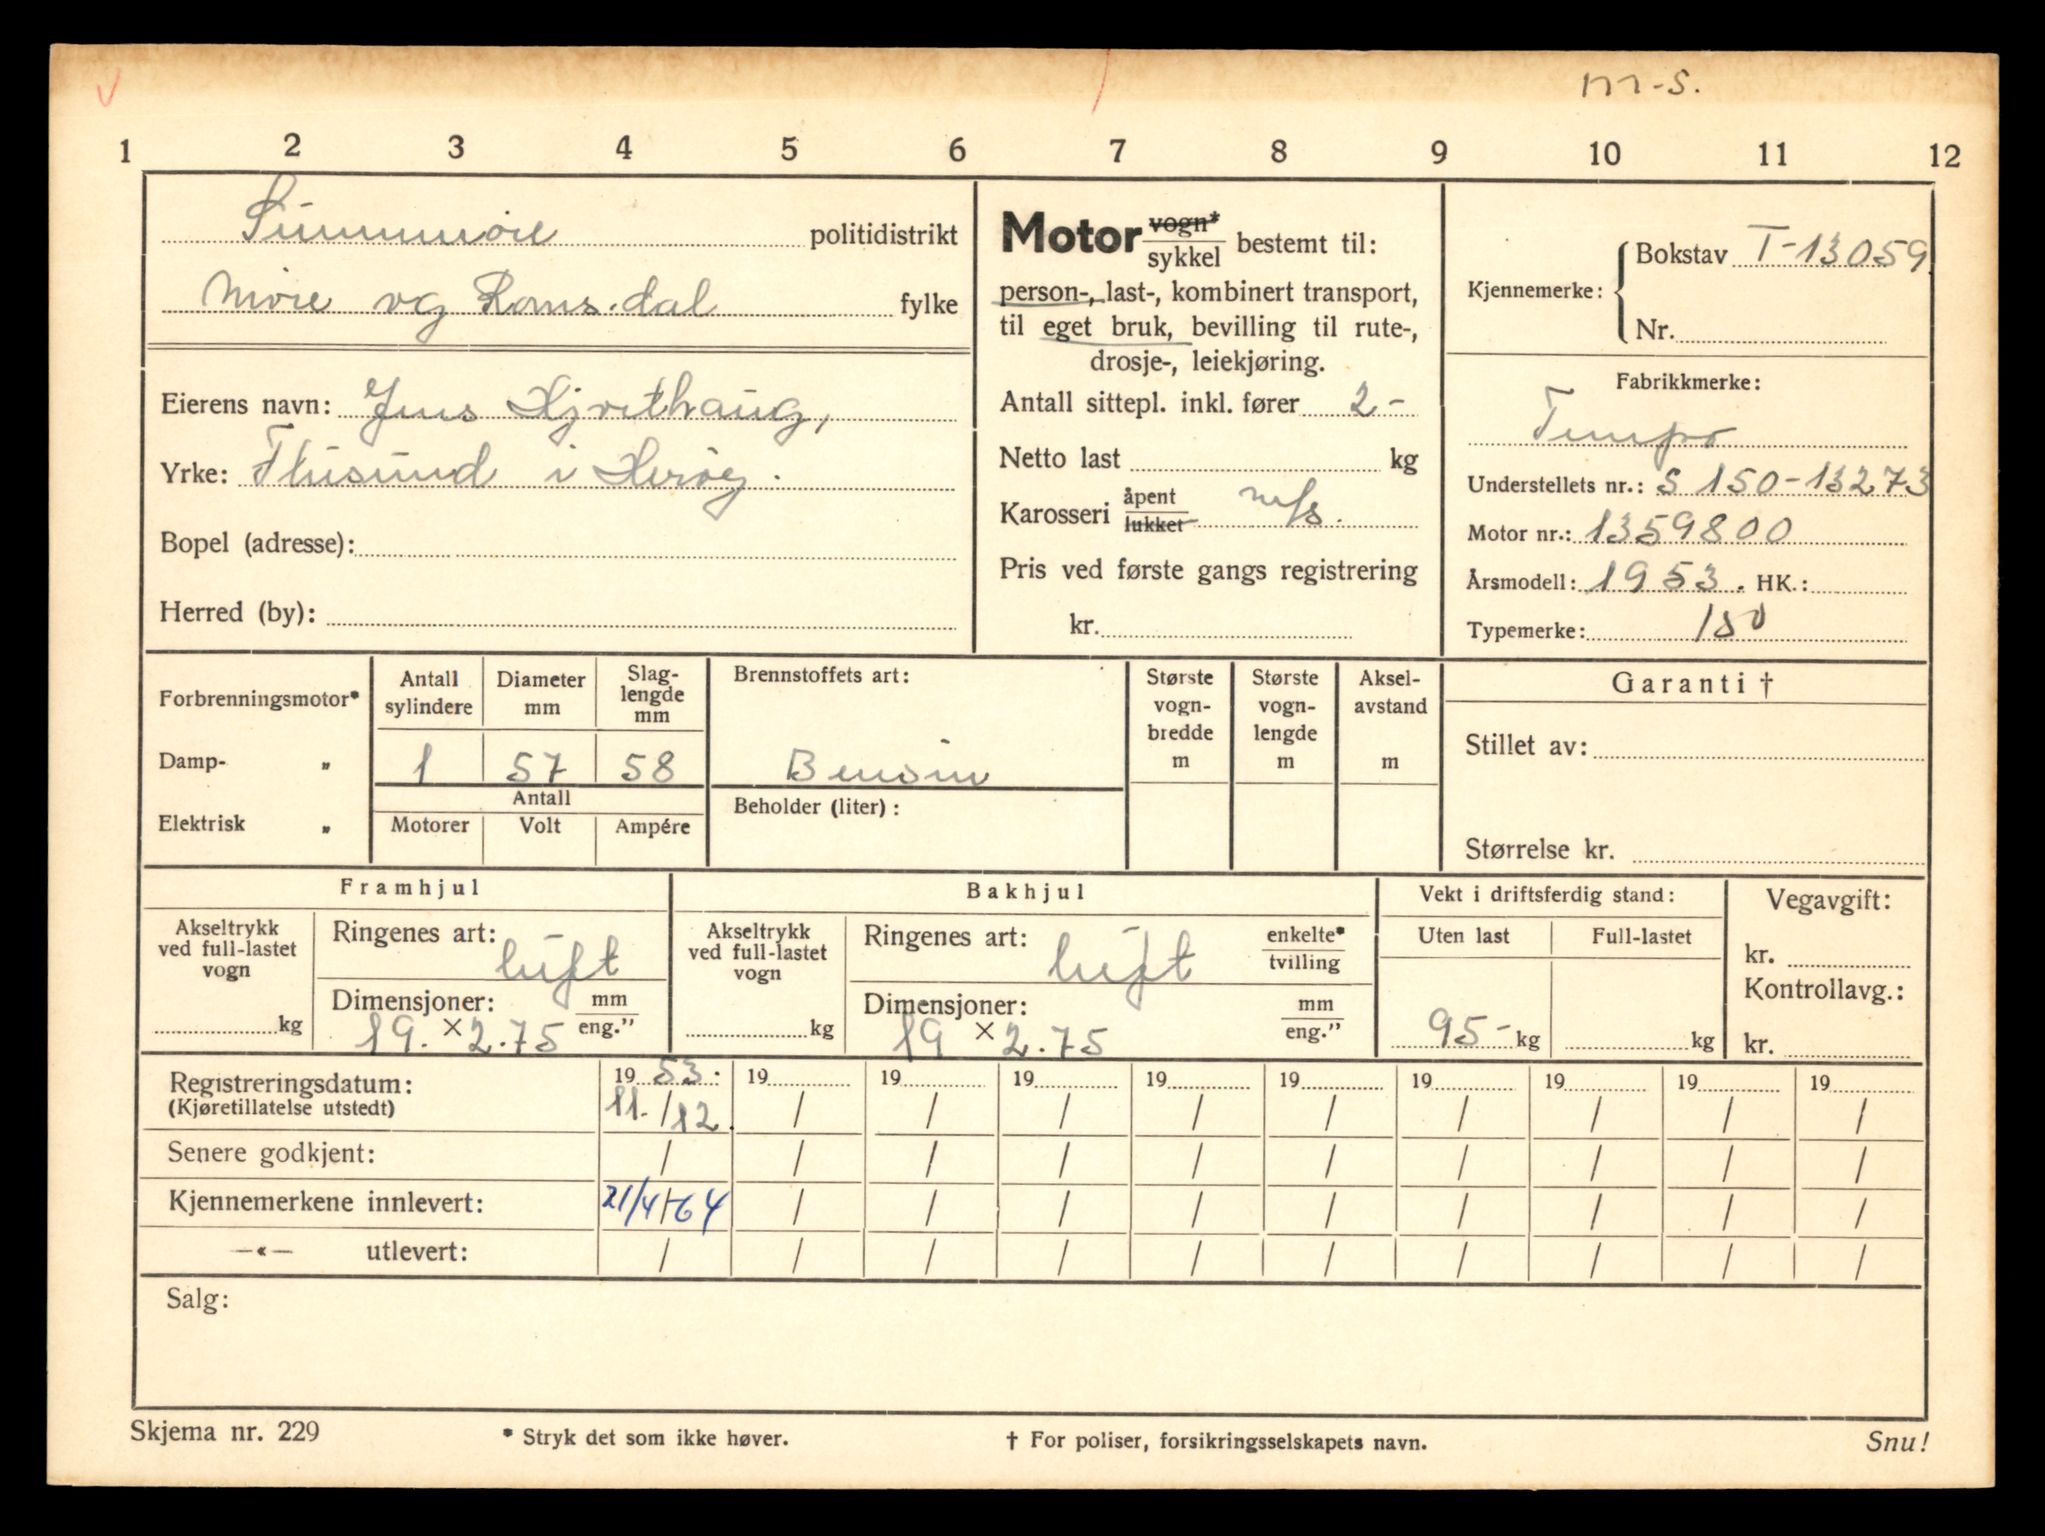 m-s.
1 2 3 4 5 6 7 8 9 10 11 12
Sunnmøre politidistrikt
Møre og Romsdal fylke
Eierens navn: Jens Kjeithaug,
Yrke: Flusund i Herøy.
Bopel (adresse):
Herred (by):
Motor vogn* / sykkel bestemt til:
person-, last-, kombinert transport,
til eget bruk, bevilling til rute-,
drosje-, leiekjøring.
Antall sittepl. inkl. fører 2-
Netto last kg
Karosseri åpent / lukket mfs.
Pris ved første gangs registrering
kr.
Kjennemerke: Bokstav T-13059
Nr.
Fabrikkmerke:
Tempo
Understellets nr.: S 150-13273
Motor nr.: 1359800
Årsmodell: 1953. HK.:
Typemerke: 150
Forbrenningsmotor*
Damp- „
Elektrisk „
Antall sylindere Diameter mm Slag-lengde mm
1 57 58
Antall
Motorer Volt Ampére
Brennstoffets art:
Bensin
Beholder (liter) :
Største vogn-bredde m
Største vogn-lengde m
Aksel-avstand m
Garanti †
Stillet av:
Størrelse kr.
Framhjul
Akseltrykk ved full-lastet vogn
kg
Ringenes art: luft
Dimensjoner: mm / eng."
19. × 2.75
Bakhjul
Akseltrykk ved full-lastet vogn
kg
Ringenes art: luft enkelte* / tvilling
Dimensjoner: mm / eng."
19 × 2.75
Vekt i driftsferdig stand:
Uten last Full-lastet
95- kg kg
Vegavgift:
kr.
Kontrollavg.:
kr.
Registreringsdatum: 19 53. 19 19 19 19 19 19 19 19 19
(Kjøretillatelse utstedt) 11. / 12. / / / / / / / / /
Senere godkjent: / / / / / / / / / /
Kjennemerkene innlevert: 21/4-64 / / / / / / / / /
—«— utlevert: / / / / / / / / / /
Salg:
Skjema nr. 229 * Stryk det som ikke høver. † For poliser, forsikringsselskapets navn. Snu!